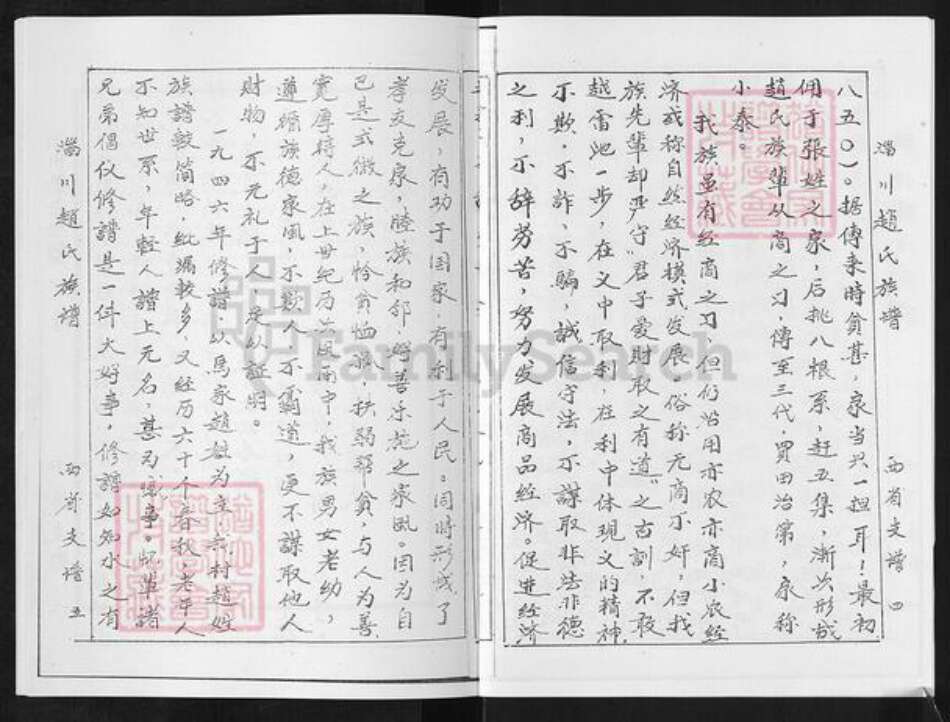 淄川趙氏族譜
西省支譜 四
八五〇)。据傳来時貧甚,家当只一担耳!最初
佣于張姓之家,后挑八根系,赶五集,漸次形成
趙氏族輩从商之习,傳至三代,買田治第,家称
小泰。
我族虽有經商之习,但仍沿用亦农亦商小农經
济或称自然經济模式发展。俗称无商不奸,但我
族先輩却严守"君子爱財取之有道"之古訓,不敢
越雷池一步,在义中取利,在利中体現义的精神
不欺、不詐、不騙,誠信守法,不謀取非法非德
之利,不辞劳苦,努力发展商品經济。促进經济
发展,有功于国家,有利于人民。同時形成了
孝友克家,睦族和邻,好善乐施之家風。因为自
已是式微之族,怜貧恤孤,扶弱帮貧,与人为善
寬厚待人,在上世紀历次風雨中,我族男女老幼,
遵循族德家風,不欺人,不霸道,更不謀取他人
財物,不无礼于人,足以証明。
一九四六年修譜以馬家趙姓为主,村趙姓
族譜較简略,紕漏較多,又經历六十个春秋,老年人
不知世系,年輕人譜上无名,甚为憾事。晚輩諸
兄弟倡仪修譜是一件大好事,修譜如知水之有
淄川趙氏族譜
西省支譜 五
FamilySearch